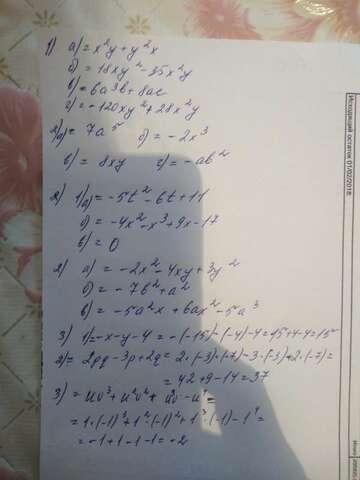 1) а) = x²y + y²x
б) = 18xy² - 35x²y
в) = 6a³b + 8ac
г) = -120xy² + 28x²y
2) а) = 7a⁵ б) = -2x³
в) = 8xy г) = -ab²
2) 1) а) = -5t² - 6t + 11
б) = -4x² - x³ + 9x - 17
в) = 0
2) а) = -2x² - 4xy + 3y²
б) = -7b² + a²
в) = -5a²x + 6ax² - 5a³
3) 1) = -x - y - 4 = -(-15) - (-4) - 4 = 15 + 4 - 4 = 15
2) = 2pq - 3p + 2q = 2·(-3)·(-7) - 3·(-3) + 2·(-7) =
= 42 + 9 - 14 = 37
3) = uv³ + u²v² + u³v - u⁴ =
= 1·(-1)³ + 1²·(-1)² + 1³·(-1) - 1⁴ =
= -1 + 1 - 1 - 1 = -2
Исходящий остаток 01/02/2018: